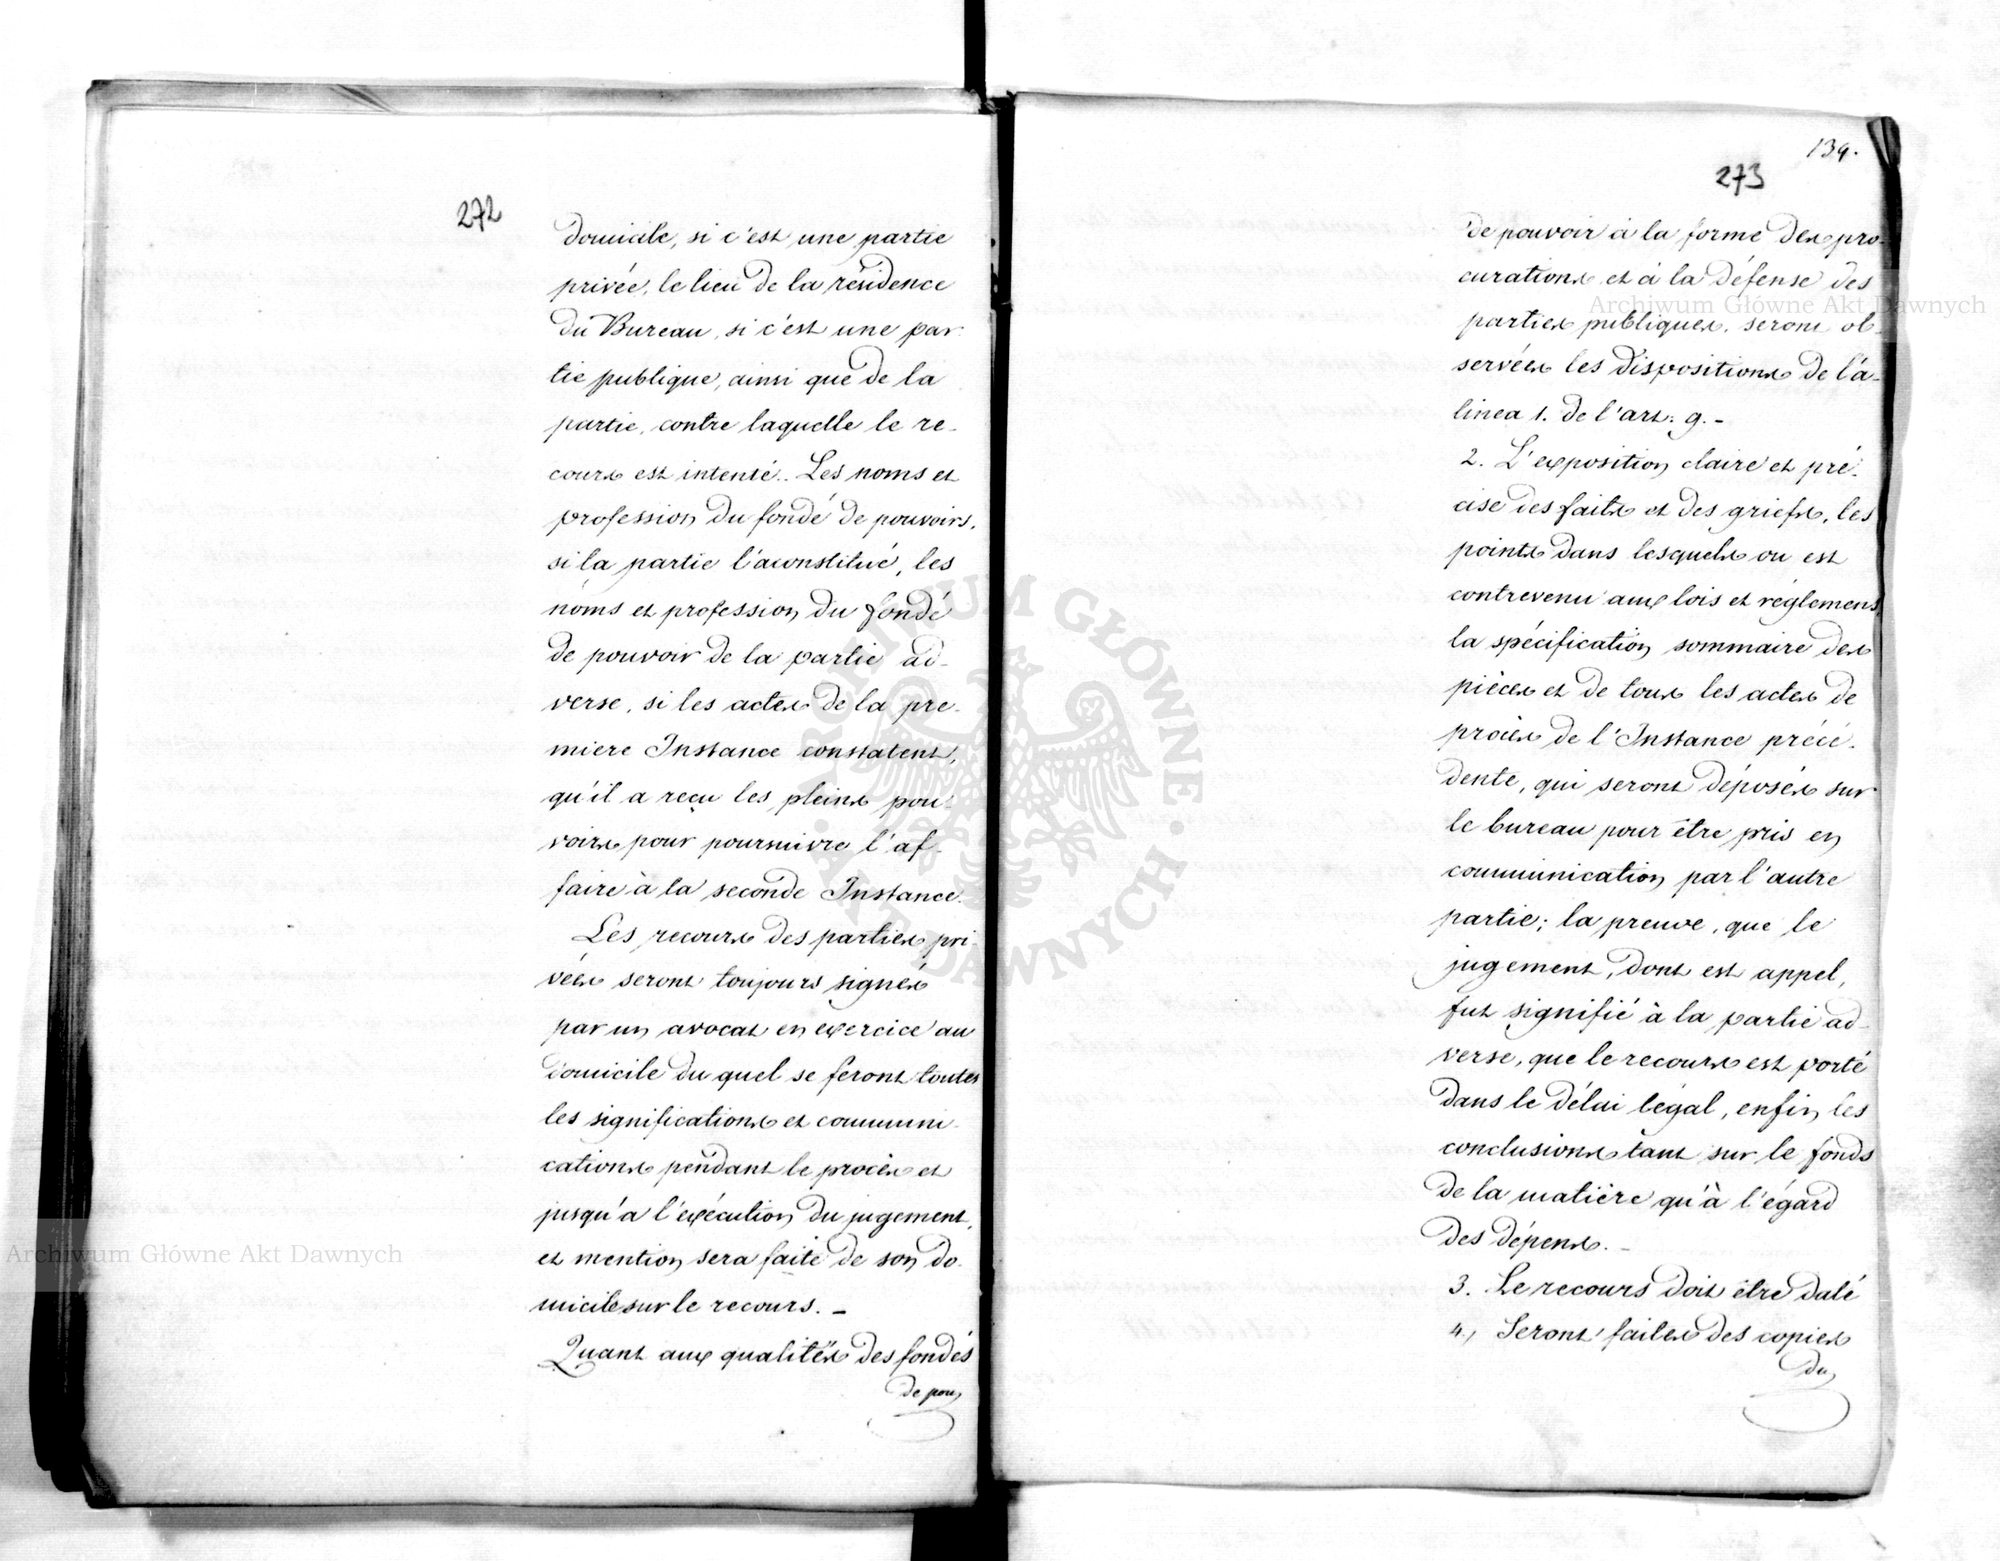 272
domicile, si c'est une partie
privée, le lieu de la résidence
du Bureau, si c'est une par-
tie publique, ainsi que de la
partie, contre laquelle le re-
cours est intenté. Les noms et
profession du fondé de pouvoirs,
si la partie l'a constitué, les
noms et profession du fondé
de pouvoir de la partie ad-
verse, si les actes de la pre-
miere Instance constatent,
qu'il a reçu les pleins pou-
voirs pour poursuivre l'af-
faire à la seconde Instance.
Les recours des parties pri-
vées seront toujours signés
par un avocat en exercice au
domicile du quel se feront toutes
les significations et communi-
cations pendant le procès et
jusqu'a l'exécution du jugement,
et mention sera faite de son do-
micile sur le recours. -
Quant aux qualités des fondés
de pou
139.
273
de pouvoir à la forme des pro-
curations et à la défense des
parties publiques, seront ob-
servées les dispositions de l'a-
linea 1. de l'art: 9. -
2. L'exposition claire et pré-
cise des faits et des griefs, les
points dans lesquels on est
contrevenu aux lois et réglemens,
la spécification sommaire des
pièces et de tous les actes de
procès de l'Instance précé-
dente, qui seront déposés sur
le bureau pour être pris en
communication par l'autre
partie; la preuve, que le
jugement, dont est appel,
fut signifié à la partie ad-
verse, que le recours est porté
dans le délai légal, enfin les
conclusions tant sur le fonds
de la matière qu'à l'égard
des dépens. -
3. Le recours doit être daté
4, Seront faites des copies
du
Archiwum Główne Akt Dawnych
Archiwum Główne Akt Dawnych
ARCHIWUM GŁÓWNE AKT DAWNYCH